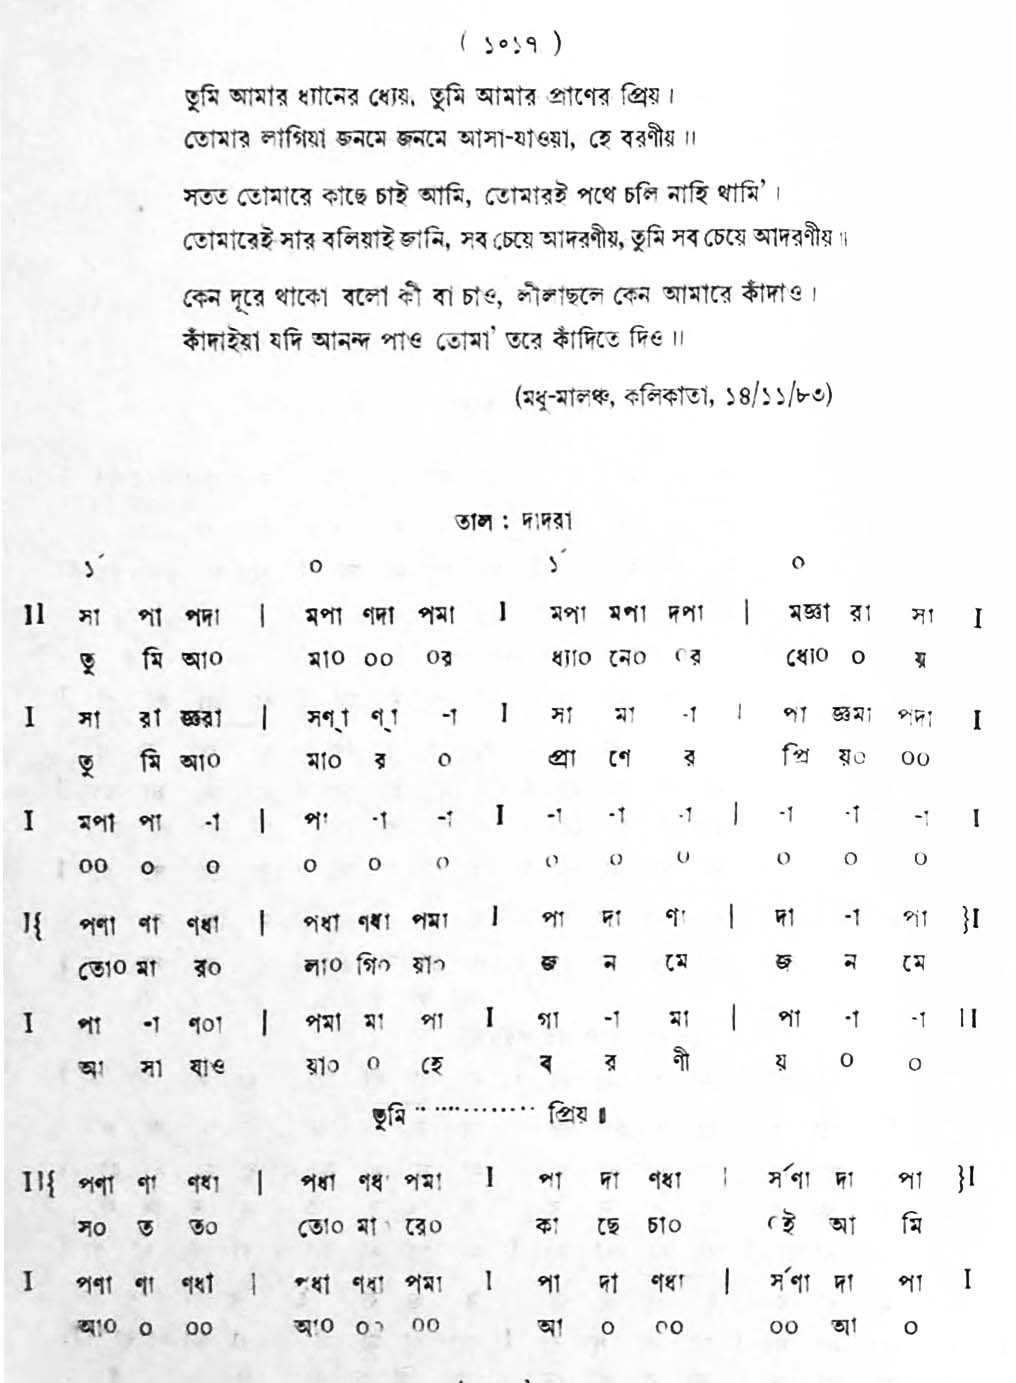 ( ১০১৭ )
তুমি আমার ধ্যানের ধ্যেয়, তুমি আমার প্রাণের প্রিয় ।
তোমার লাগিয়া জনমে জনমে আসা-যাওয়া, হে বরণীয় ॥
সতত তোমারে কাছে চাই আমি, তোমারই পথে চলি নাহি থামি' ।
তোমারেই সার বলিয়াই জানি, সব চেয়ে আদরণীয়, তুমি সব চেয়ে আদরণীয় ॥
কেন দূরে থাকো বলো কী বা চাও, লীলাছলে কেন আমারে কাঁদাও ।
কাঁদাইয়া যদি আনন্দ পাও তোমা' তরে কাঁদিতে দিও ॥
(মধু-মালঞ্চ, কলিকাতা, ১৪/১১/৮৩)
তাল : দাদরা
১´ ০ ১´ ০
II সা পা পদা | মপা ণদা পমা I মপা মপা দপা | মজ্ঞা রা সা I
তু মি আ০ মা০ ০০ ০র ধ্যা০ নে০ ০র ধ্যে০ ০ য়
I সা রা জ্ঞরা | সণ্া ণ্া -া I সা মা -া | পা জ্ঞমা পদা I
তু মি আ০ মা০ র ০ প্রা ণে র প্রি য়০ ০০
I মপা পা -া | পা -া -া I -া -া -া | -া -া -া I
০০ ০ ০ ০ ০ ০ ০ ০ ০ ০ ০ ০
I{ পণা ণা ণধা | পধা ণধা পমা I পা দা ণা | দা -া পা }I
তো০ মা র০ লা০ গি০ য়া০ জ ন মে জ ন মে
I পা -া ণ০া | পমা মা পা I গা -া মা | পা -া -া II
আ সা যাও য়া০ ০ হে ব র ণী য় ০ ০
তুমি ·············· প্রিয় ॥
II{ পণা ণা ণধা | পধা ণধা পমা I পা দা ণধা | র্সণা দা পা }I
স০ ত ত০ তো০ মা০ রে০ কা ছে চা০ ০ই আ মি
I পণা ণা ণধা | পধা ণধা পমা I পা দা ণধা | র্সণা দা পা I
আ০ ০ ০০ আ০ ০০ ০০ আ ০ ০০ ০০ আ ০